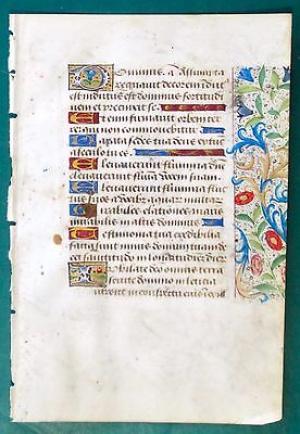 Dominus
regnavit decorem indut
est indutus est dominus fortitudi
nem et precinxit se
Et enim firmavit orbem ter
re qui non commovebitur
Parata sedes tua deus ex tunc
a seculo tu es
Elevaverunt flumina domine
elevaverunt flumina vocem suam
Elevaverunt flumina fluc
tus suos a vocibus aquarum multarum
Mirabiles elationes maris
mirabilis in altis dominus
Testimonia tua credibilia
facta sunt nimis domum tuam de
cet sanctitudo in longitudine dier
Jubilate deo omnis terra
servite domino in leticia
introite in conspectu eius in